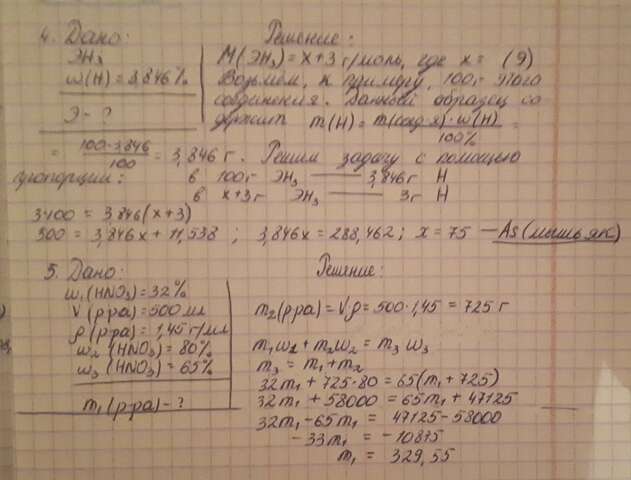 4. Дано:
ЭН3
ω(Н) = 3,846%
Э - ?
Решение:
М(ЭН3) = х+3 г/моль, где х = (Э)
Возьмем, к примеру, 100г этого
соединения. Данный образец со
держит m(H) = m(соед-я)·ω(Н)/100% =
= 100·3,846/100 = 3,846 г. Решим задачу с помощью
пропорции: в 100г ЭН3 — 3,846г Н
в х+3г ЭН3 — 3г Н
3·100 = 3,846(х+3)
300 = 3,846х + 11,538 ; 3,846х = 288,462 ; х = 75 — As (мышьяк)
5. Дано:
ω1(HNO3) = 32%
V(р-ра) = 500 мл
ρ(р-ра) = 1,45 г/мл
ω2(HNO3) = 80%
ω3(HNO3) = 65%
m1(р-ра) - ?
Решение:
m2(р-ра) = Vρ = 500·1,45 = 725 г
m1ω1 + m2ω2 = m3ω3
m3 = m1 + m2
32m1 + 725·80 = 65(m1 + 725)
32m1 + 58000 = 65m1 + 47125
32m1 - 65m1 = 47125 - 58000
-33m1 = -10875
m1 = 329,55